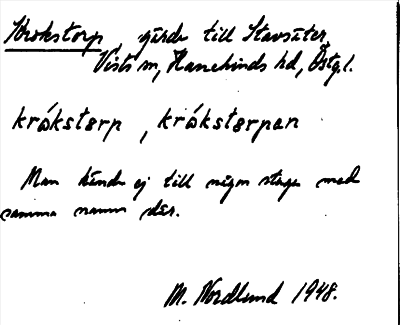 Krokstorp, gärde till Stavsäter,
Vists sn, Hanekinds hd, Östgl.
krókstorp, krókstorpen
Man kände ej till någon stuga med
samma namn där.
M. Nordlund 1948.